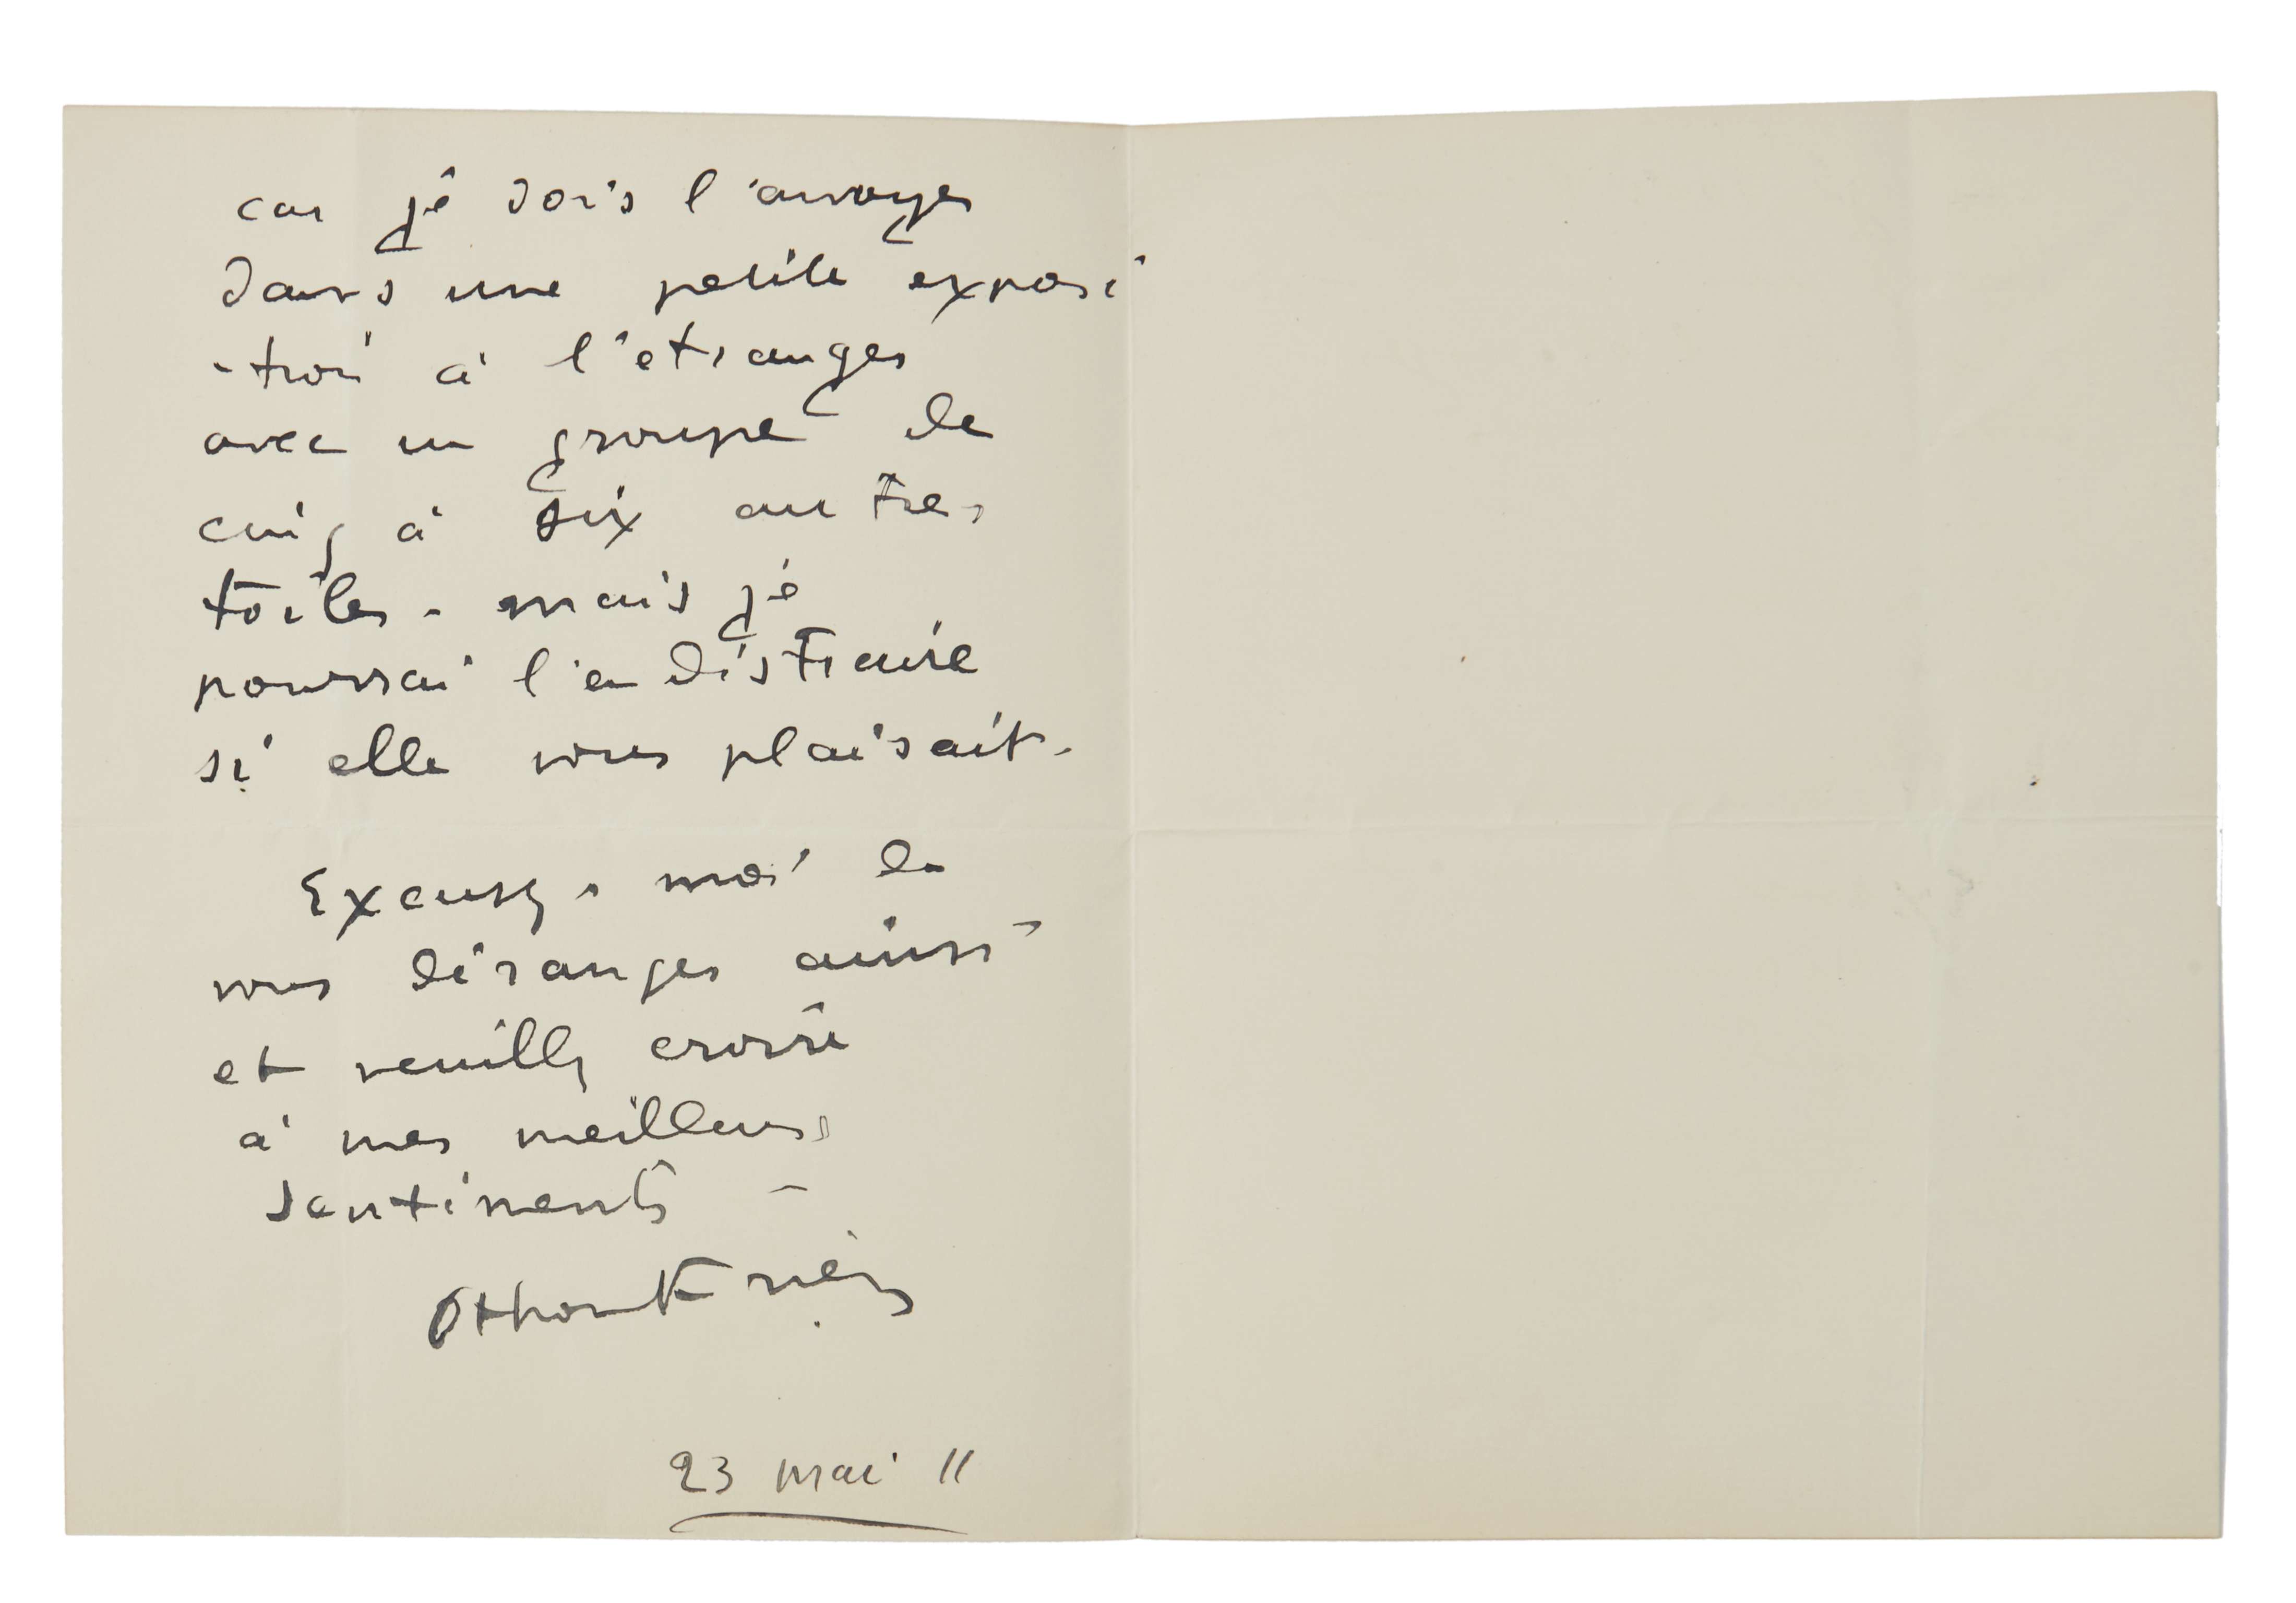 car je dois l'envoyer
dans une petite exposi
-tion à l'étranger
avec un groupe de
cinq à six autres
toiles - mais je
pourrai l'en distraire
si elle vous plaisait -
Excusez-moi de
vous déranger ainsi
et veuillez croire
à mes meilleurs
sentiments -
Othon Friesz
23 mai 11